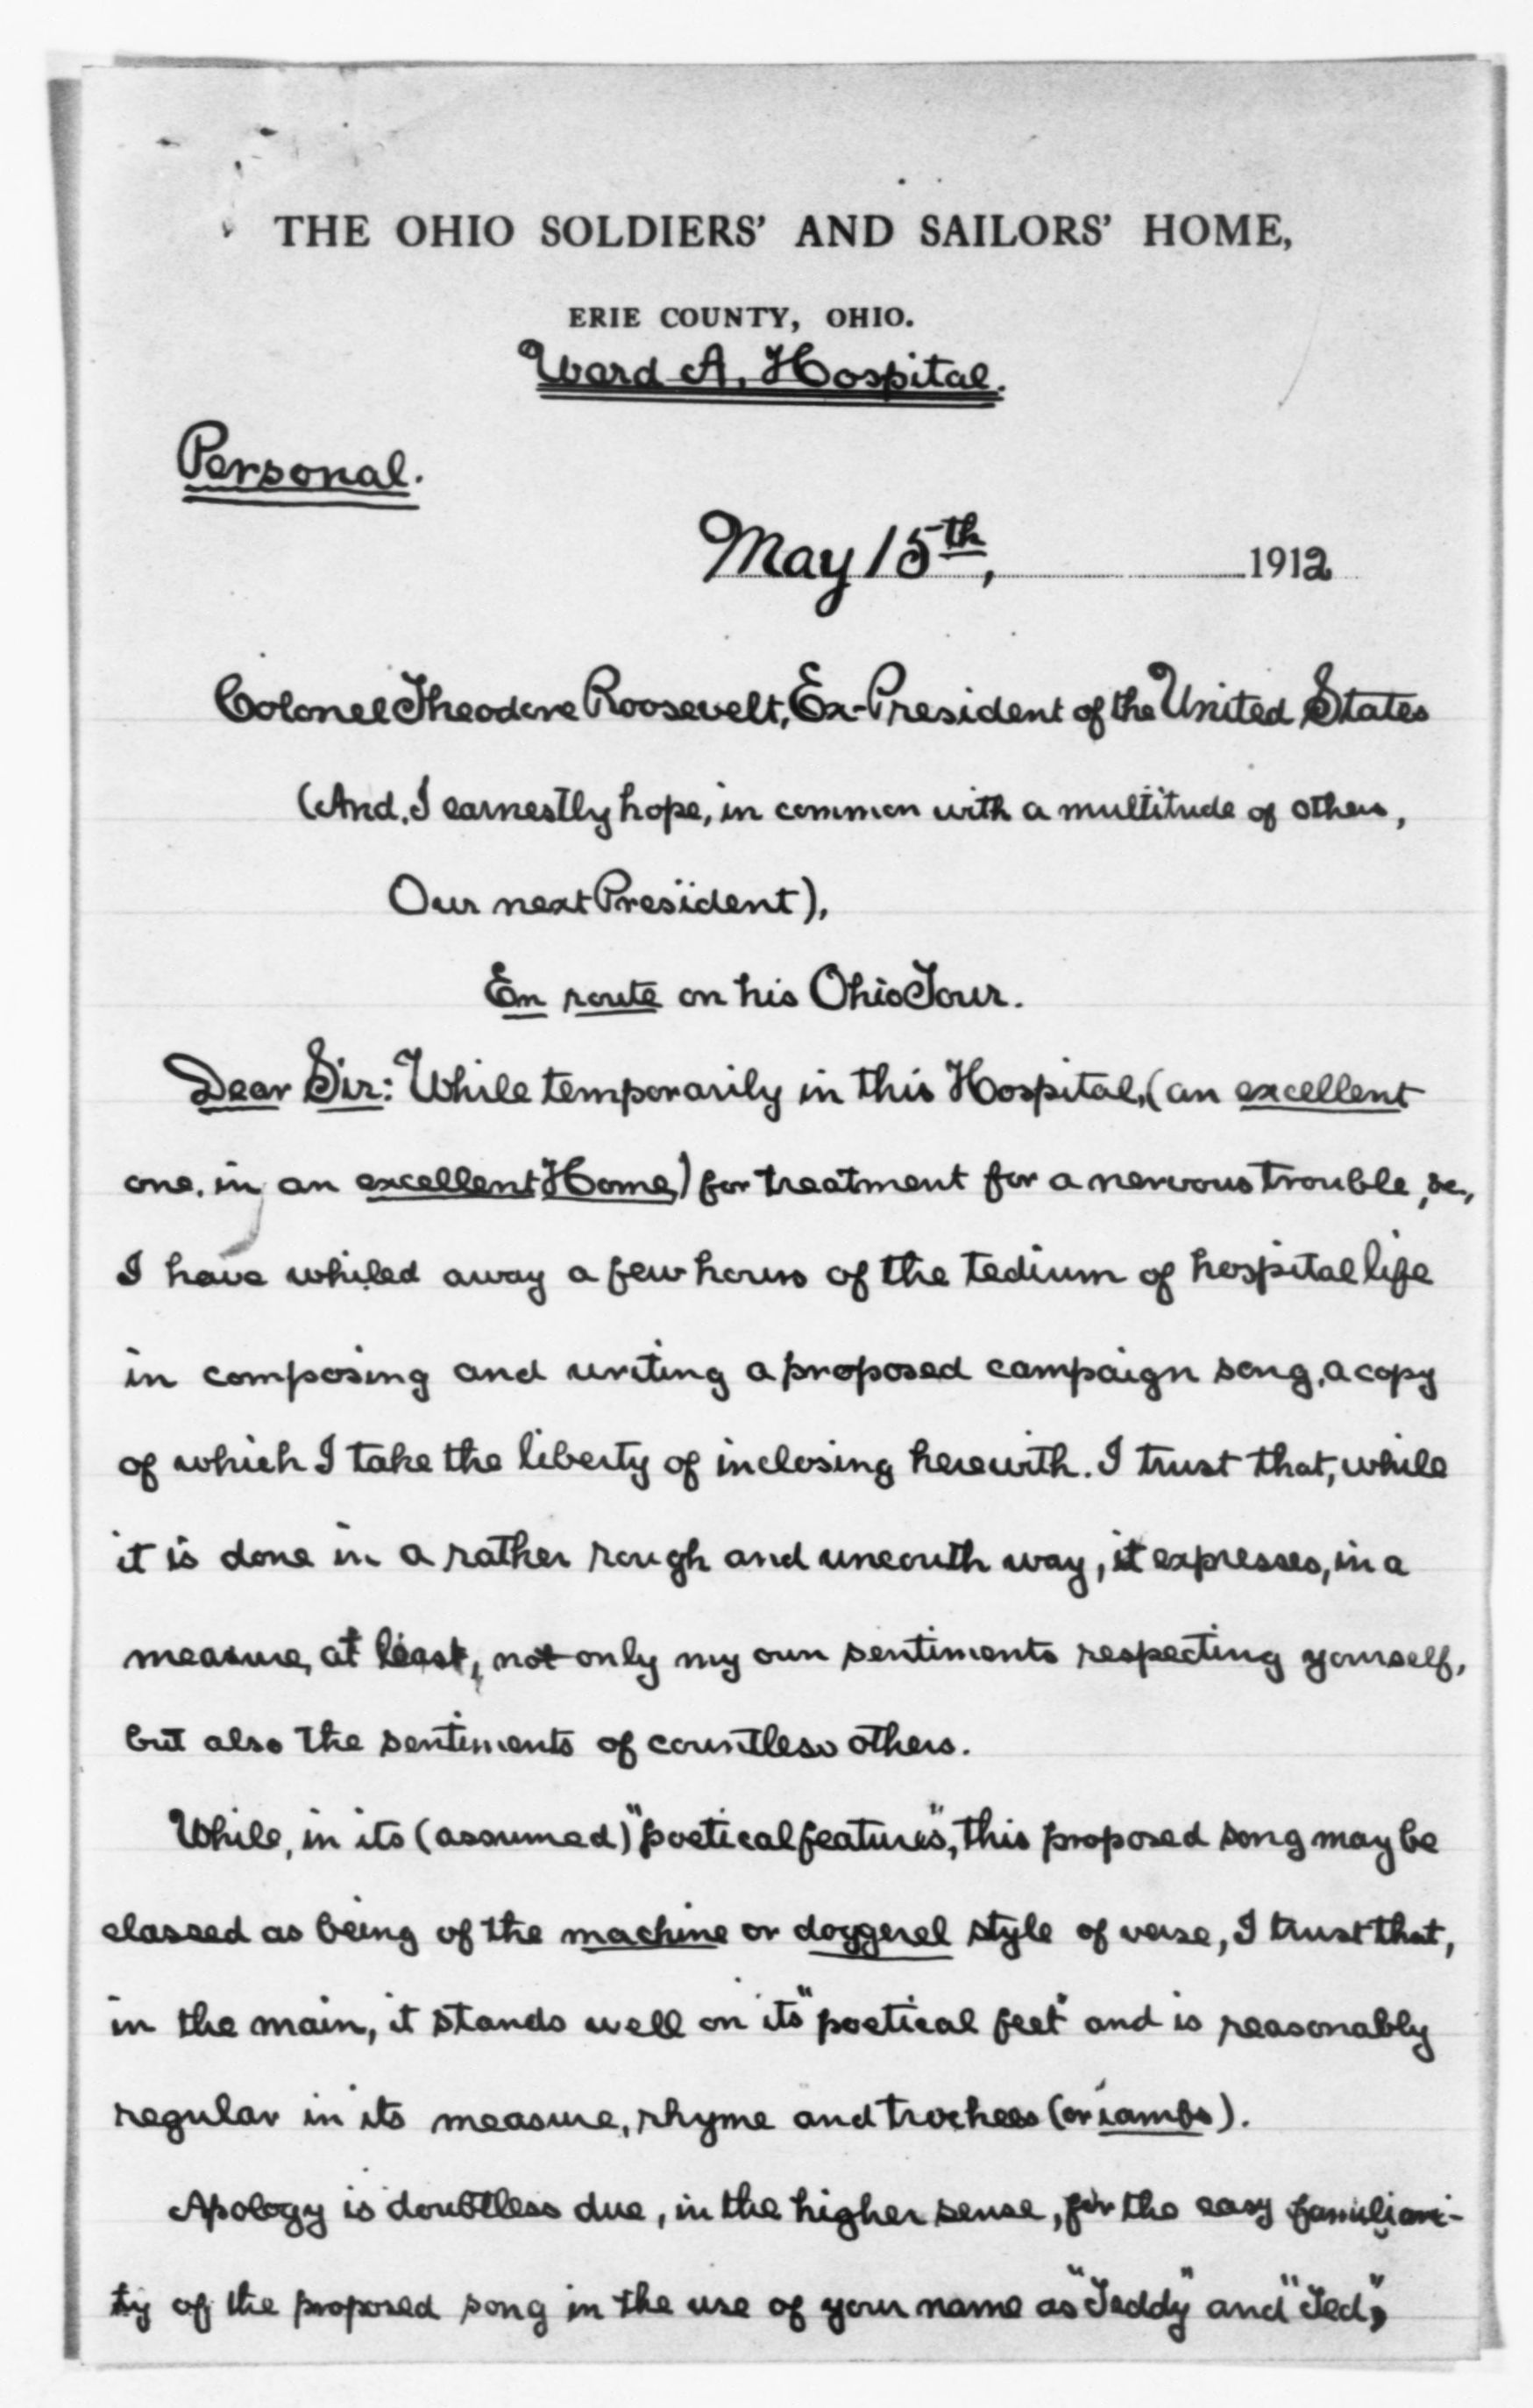 THE OHIO SOLDIERS' AND SAILORS' HOME,
ERIE COUNTY, OHIO.
Ward A, Hospital.
Personal.
May 15th, 1912
Colonel Theodore Roosevelt, Ex-President of the United States
(And, I earnestly hope, in common with a multitude of others,
Our next President),
En route on his Ohio Tour.
Dear Sir: While temporarily in this Hospital, (an excellent
one, in an excellent Home) for treatment for a nervous trouble, &c.,
I have whiled away a few hours of the tedium of hospital life
in composing and writing a proposed campaign song, a copy
of which I take the liberty of inclosing herewith. I trust that, while
it is done in a rather rough and uncouth way, it expresses, in a
measure, at least, not only my own sentiments respecting yourself,
but also the sentiments of countless others.
While, in its (assumed) "poetical features", this proposed song may be
classed as being of the machine or doggerel style of verse, I trust that,
in the main, it stands well on its "poetical feet" and is reasonably
regular in its measure, rhyme and trochees (or iambs).
Apology is doubtless due, in the higher sense, for the easy familiari-
ty of the proposed song in the use of your name as "Teddy" and "Ted",